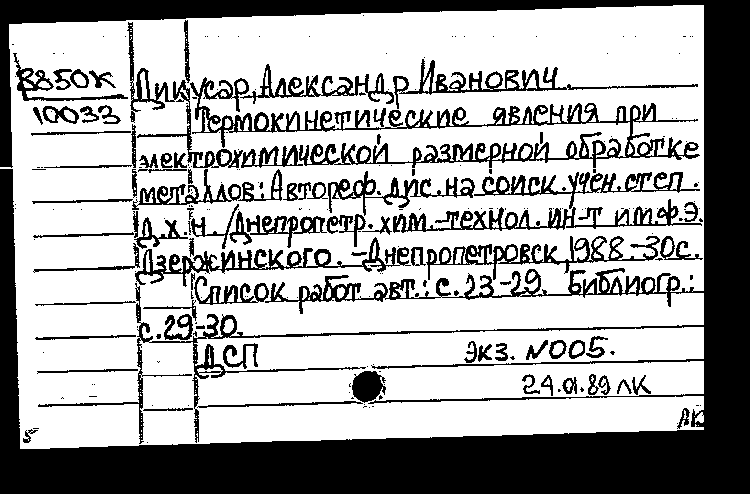 В850К Дикусар, Александр Иванович.
10033 Термокинетические явления при
электрохимической размерной обработке
металлов: Автореф. дис. на соиск. учен. степ.
д.х.н. /Днепропетр. хим.-технол. ин-т им.Ф.Э.
Дзержинского. -Днепропетровск, 1988.-30с.
Список работ авт.: с.23-29. Библиогр.:
с.29-30.
ДСП экз. N005.
24.01.89 ЛК
5